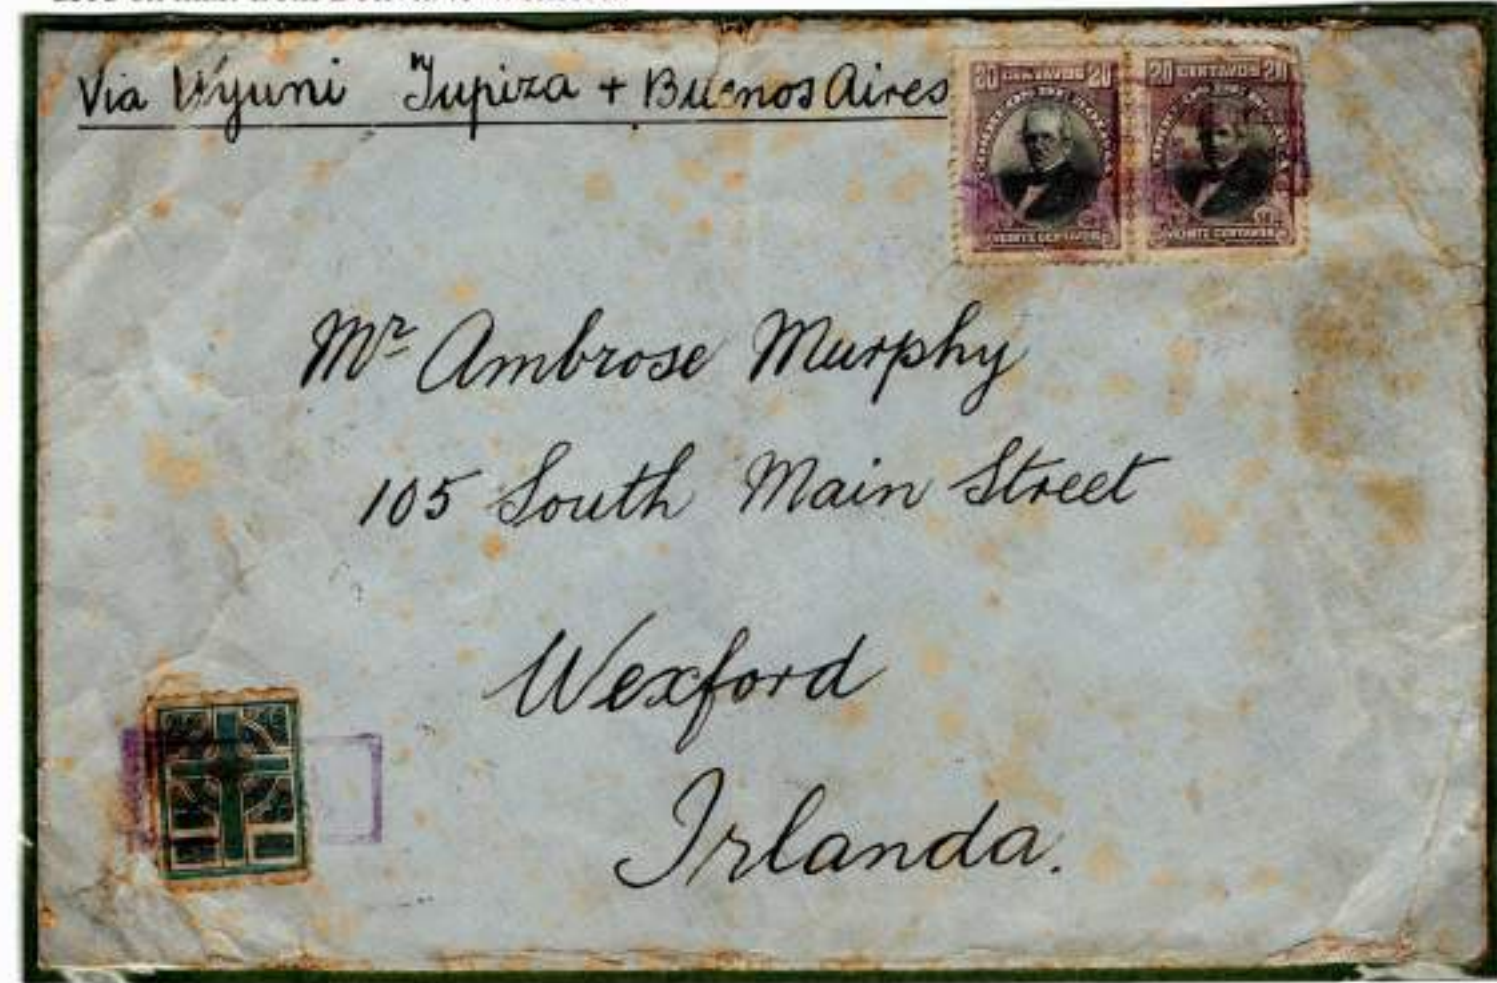 Via Uyuni Tupiza + Buenos Aires
20 CENTAVOS 20
CORREOS DE BOLIVIA
VEINTE CENTAVOS
20 CENTAVOS 20
VEINTE CENTAVOS
Mr Ambrose Murphy
105 South Main Street
Wexford
Irlanda.